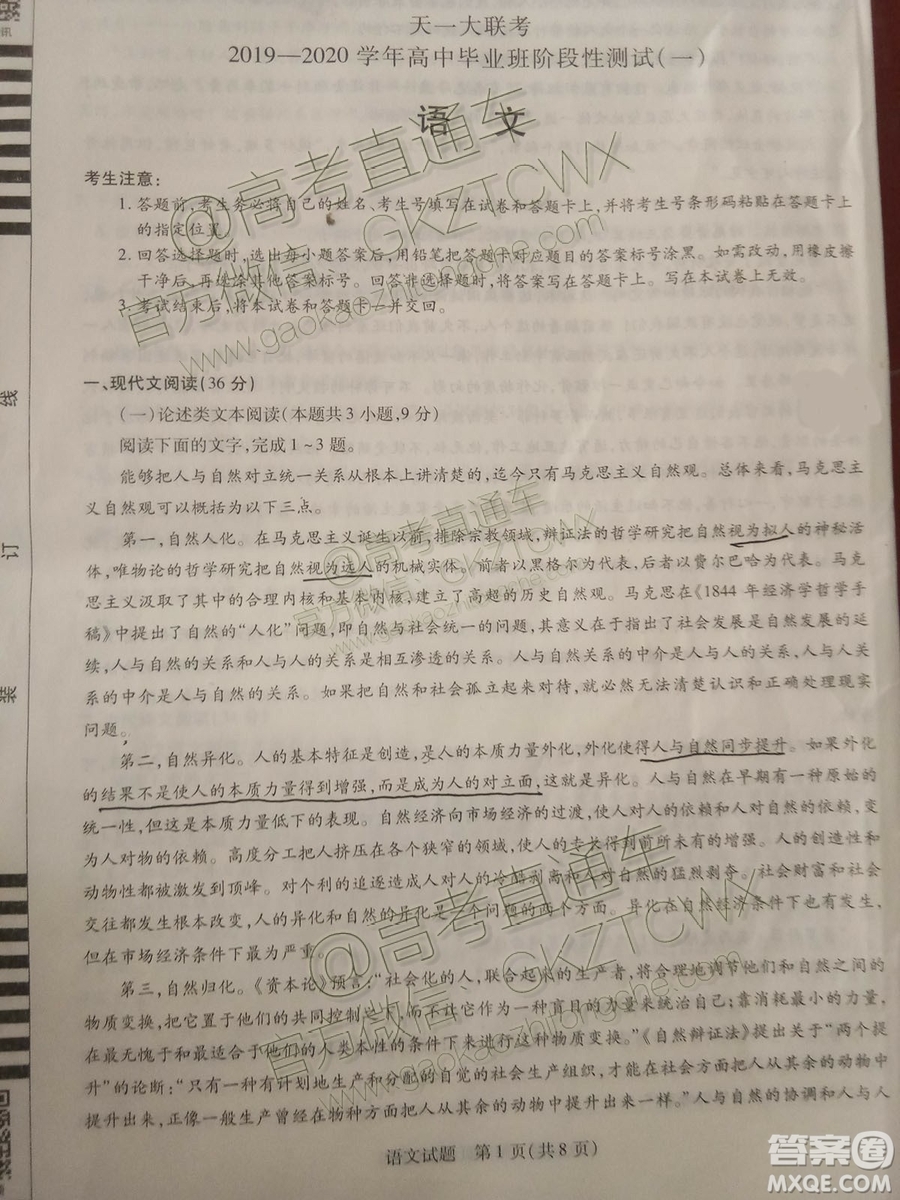 天一大联考
2019—2020 学年高中毕业班阶段性测试(一)
语 文
考生注意:
1. 答题前,考生务必将自己的姓名、考生号填写在试卷和答题卡上,并将考生号条形码粘贴在答题卡上
的指定位置。
2. 回答选择题时,选出每小题答案后,用铅笔把答题卡对应题目的答案标号涂黑。如需改动,用橡皮擦
干净后,再选涂其他答案标号。回答非选择题时,将答案写在答题卡上。写在本试卷上无效。
3. 考试结束后,将本试卷和答题卡一并交回。
一、现代文阅读(36 分)
(一)论述类文本阅读(本题共 3 小题,9 分)
阅读下面的文字,完成 1~3 题。
能够把人与自然对立统一关系从根本上讲清楚的,迄今只有马克思主义自然观。总体来看,马克思主
义自然观可以概括为以下三点。
第一,自然人化。在马克思主义诞生以前,排除宗教领域,辩证法的哲学研究把自然视为拟人的神秘活
体,唯物论的哲学研究把自然视为远人的机械实体。前者以黑格尔为代表,后者以费尔巴哈为代表。马克
思主义汲取了其中的合理内核和基本内核,建立了高超的历史自然观。马克思在《1844 年经济学哲学手
稿》中提出了自然的“人化”问题,即自然与社会统一的问题,其意义在于指出了社会发展是自然发展的延
续,人与自然的关系和人与人的关系是相互渗透的关系。人与自然关系的中介是人与人的关系,人与人关
系的中介是人与自然的关系。如果把自然和社会孤立起来对待,就必然无法清楚认识和正确处理现实
问题。
第二,自然异化。人的基本特征是创造,是人的本质力量外化,外化使得人与自然同步提升。如果外化
的结果不是使人的本质力量得到增强,而是成为人的对立面,这就是异化。人与自然在早期有一种原始的
统一性,但这是人的本质力量低下的表现。自然经济向市场经济的过渡,使人对人的依赖和人对自然的依赖,变
为人对物的依赖。高度分工把人挤压在各个狭窄的领域,使人的专长得到前所未有的增强。人的创造性和
动物性都被激发到顶峰。对个利的追逐造成人对人的冷酷剥削和人对自然的猛烈剥夺。社会财富和社会
交往都发生根本改变,人的异化和自然的异化是一个问题的两个方面。异化在自然经济条件下也有发生,
但在市场经济条件下最为严重。
第三,自然归化。《资本论》预言:“社会化的人,联合起来的生产者,将合理地调节他们和自然之间的
物质变换,把它置于他们的共同控制之下,而不让它作为一种盲目的力量来统治自己;靠消耗最小的力量,
在最无愧于和最适合于他们的人类本性的条件下来进行这种物质变换。”《自然辩证法》提出关于“两个提
升”的论断:“只有一种有计划地生产和分配的自觉的社会生产组织,才能在社会方面把人从其余的动物中
提升出来,正像一般生产曾经在物种方面把人从其余的动物中提升出来一样。”人与自然的协调和人与人
语文试题 第 1 页(共 8 页)
线
订
装
@高考直通车
官方微信:GKZTCWX
www.gaokaozhitongche.com
@高考直通车
@高考直通车
官方微信:GKZTCWX
答案圈
MXQE.COM